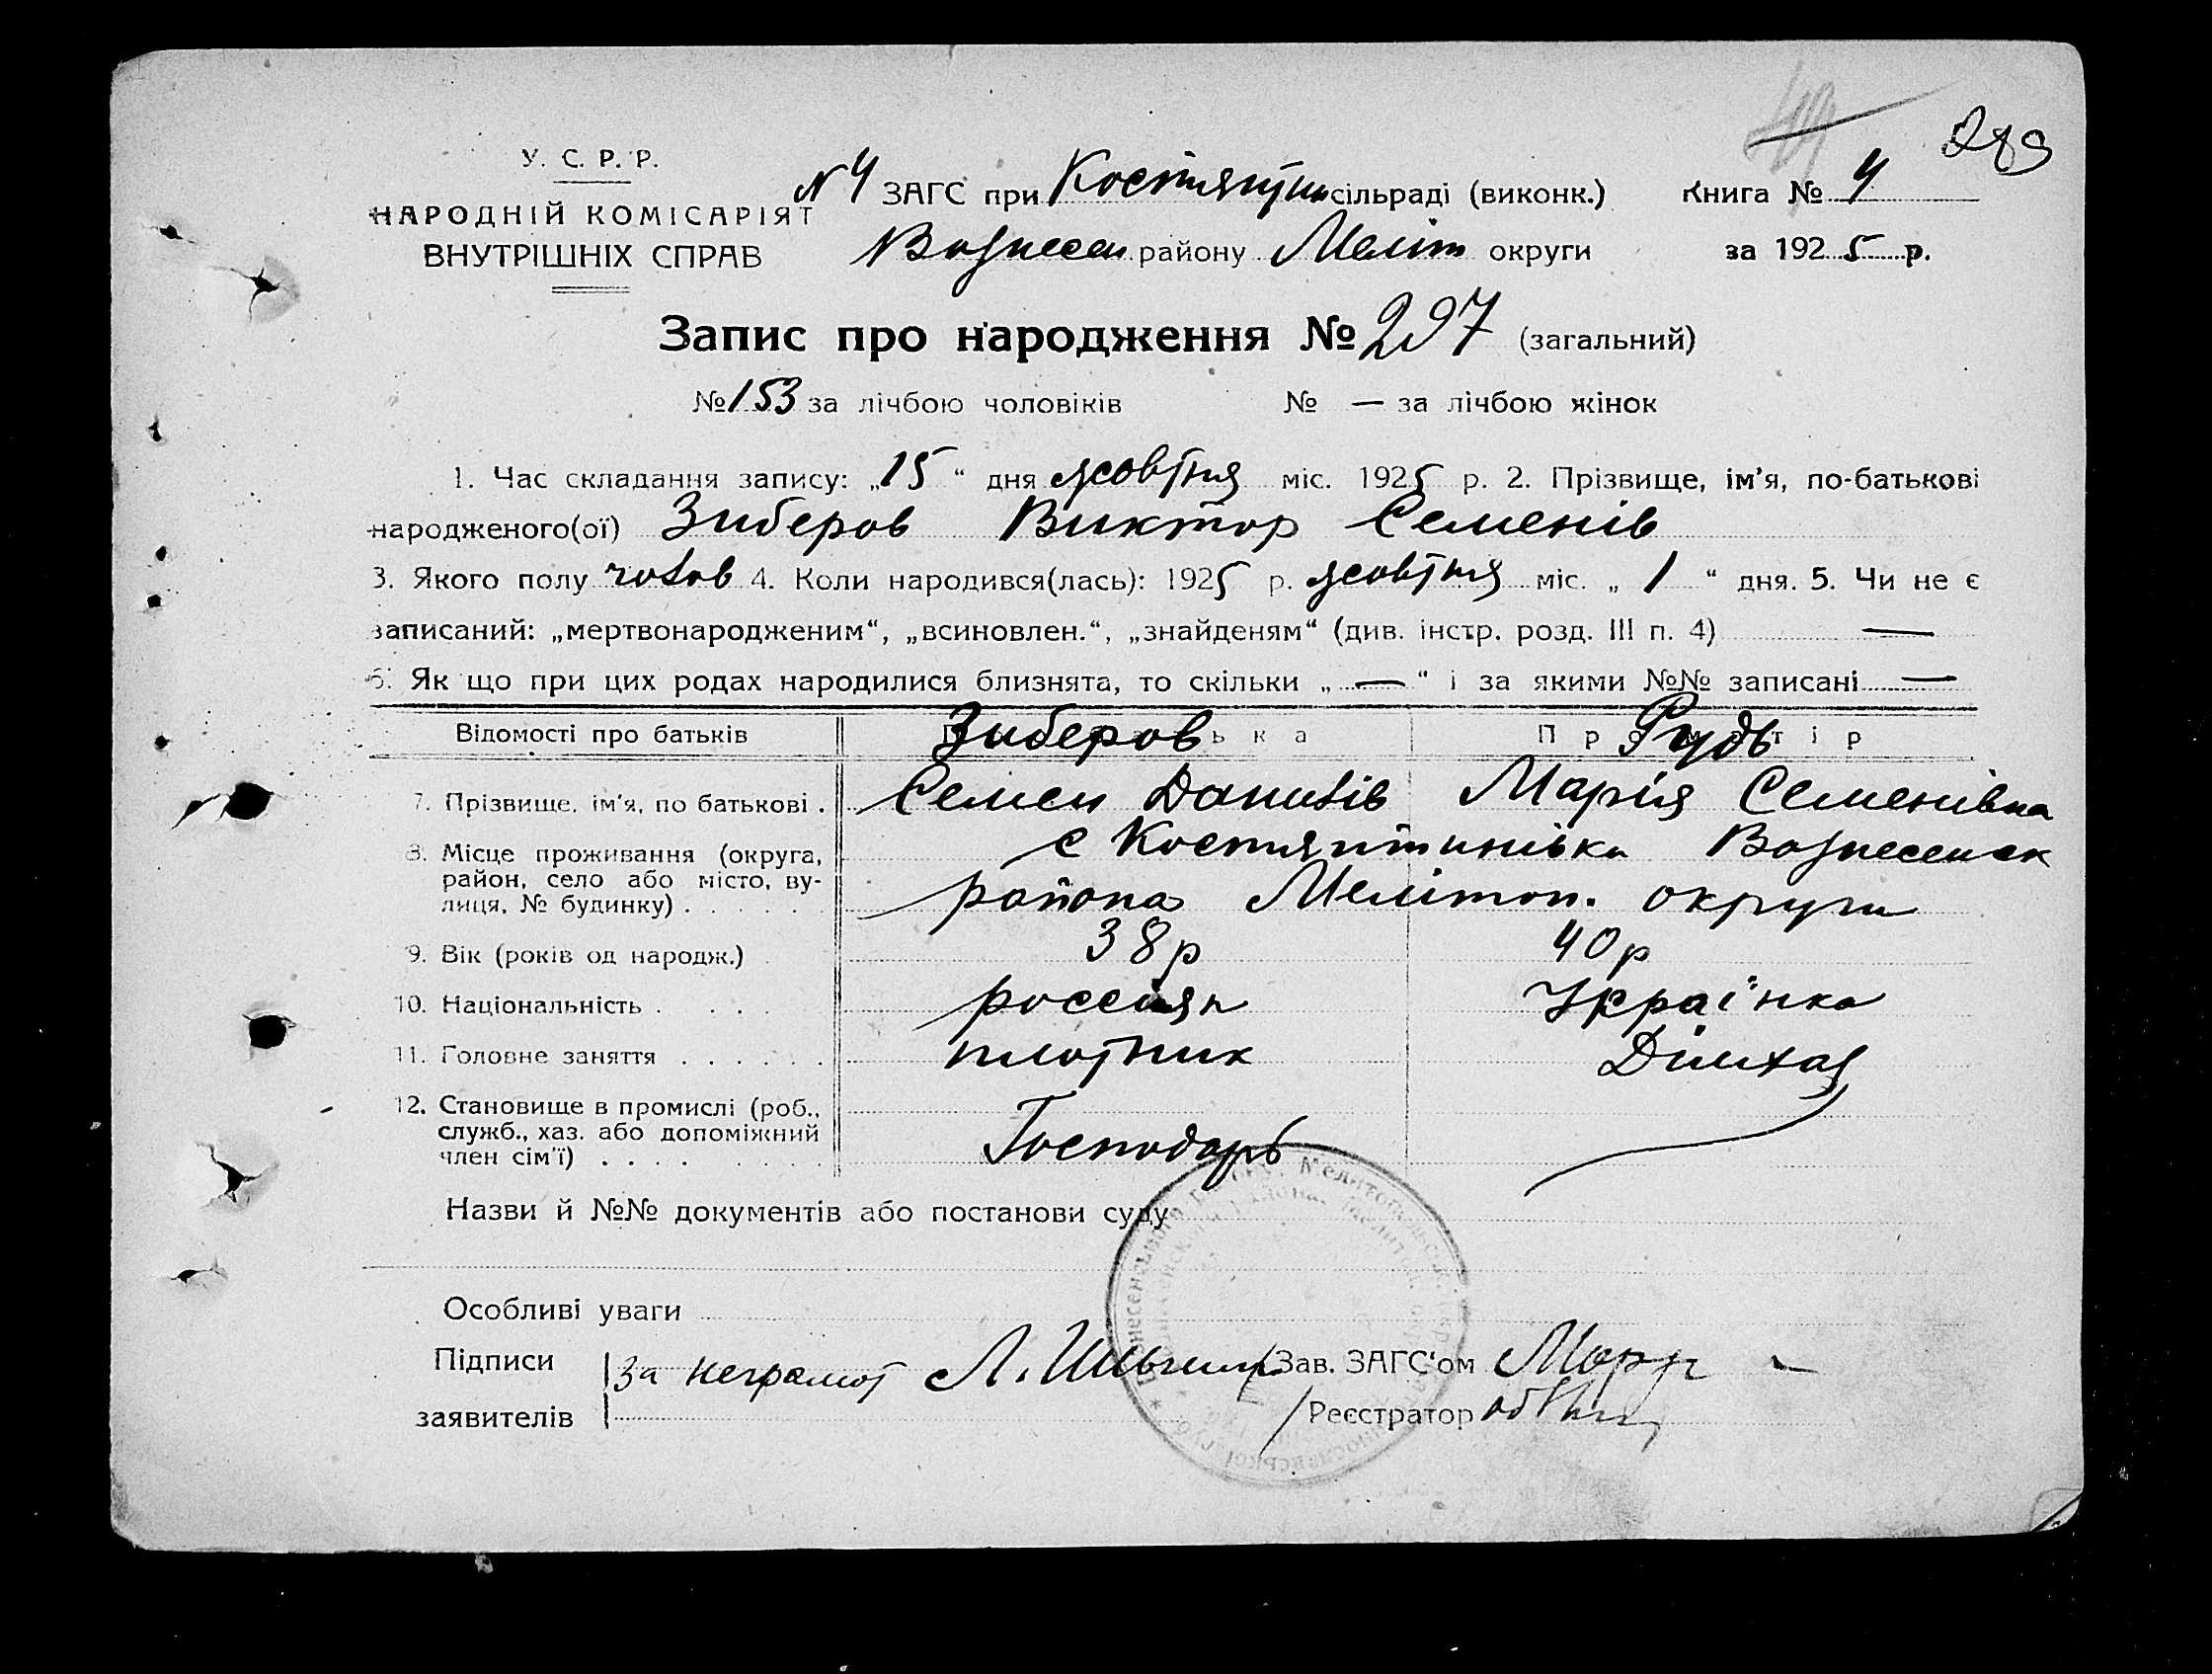 49 289
У. С. Р. Р.
НАРОДНІЙ КОМІСАРІЯТ
ВНУТРІШНІХ СПРАВ
N 4 ЗАГС при Костянтин сільраді (виконк.) Книга № 4
Вознесен району Меліт округи за 1925 р.
Запис про народження № 297 (загальний)
№ 153 за лічбою чоловіків № — за лічбою жінок
1. Час складання запису: „15“ дня жовтня міс. 1925 р. 2. Прізвище, ім’я, по-батькові
народженого(ої) Зиберов Виктор Семенів
3. Якого полу чолов 4. Коли народився(лась): 1925 р. жовтня міс. „ 1 “ дня. 5. Чи не є
записаний: „мертвонародженим“, „всиновлен.“, „знайденям“ (див. інстр. розд. III п. 4) —
6. Як що при цих родах народилися близнята, то скільки „ — “ і за якими №№ записані —
Відомості про батьків Зиберов Рудь
7. Прізвище, ім’я, по батькові . Семен Данилів Марія Семенівна
8. Місце проживання (округа, район, село або місто, вулиця, № будинку) . . . . . с Костянтинівка Вознесенск
района Мелітоп. округи
9. Вік (років од народж.) 38 р 40 р
10. Національність . . . . россіян Українка
11. Головне заняття . . . . . . плотник Дімхоз
12. Становище в промислі (роб., служб., хаз. або допоміжний член сім’ї) . . . . Господарь
Назви й №№ документів або постанови суду
Особливі уваги
Підписи За неграмот Зав. ЗАГС‘ом
заявителів Реєстратор